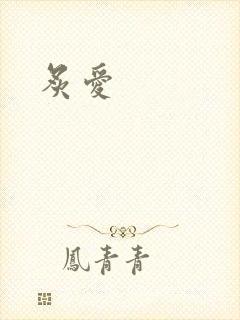 炙愛
鳳青青